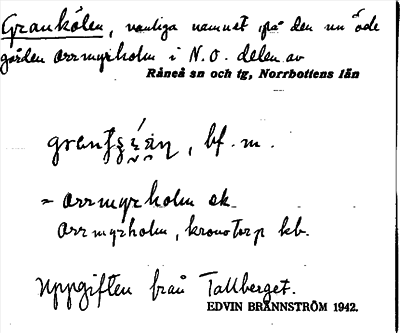 Grankölen, vanliga namnet på den nu öde
gården Orrmyrholm i N.O. delen av
Råneå sn och tg, Norrbottens län
, bf. m.
= Orrmyrholm ek.
Orrmyrholm, kronotorp kb.
Uppgiften från Tallberget.
EDVIN BRÄNNSTRÖM 1942.